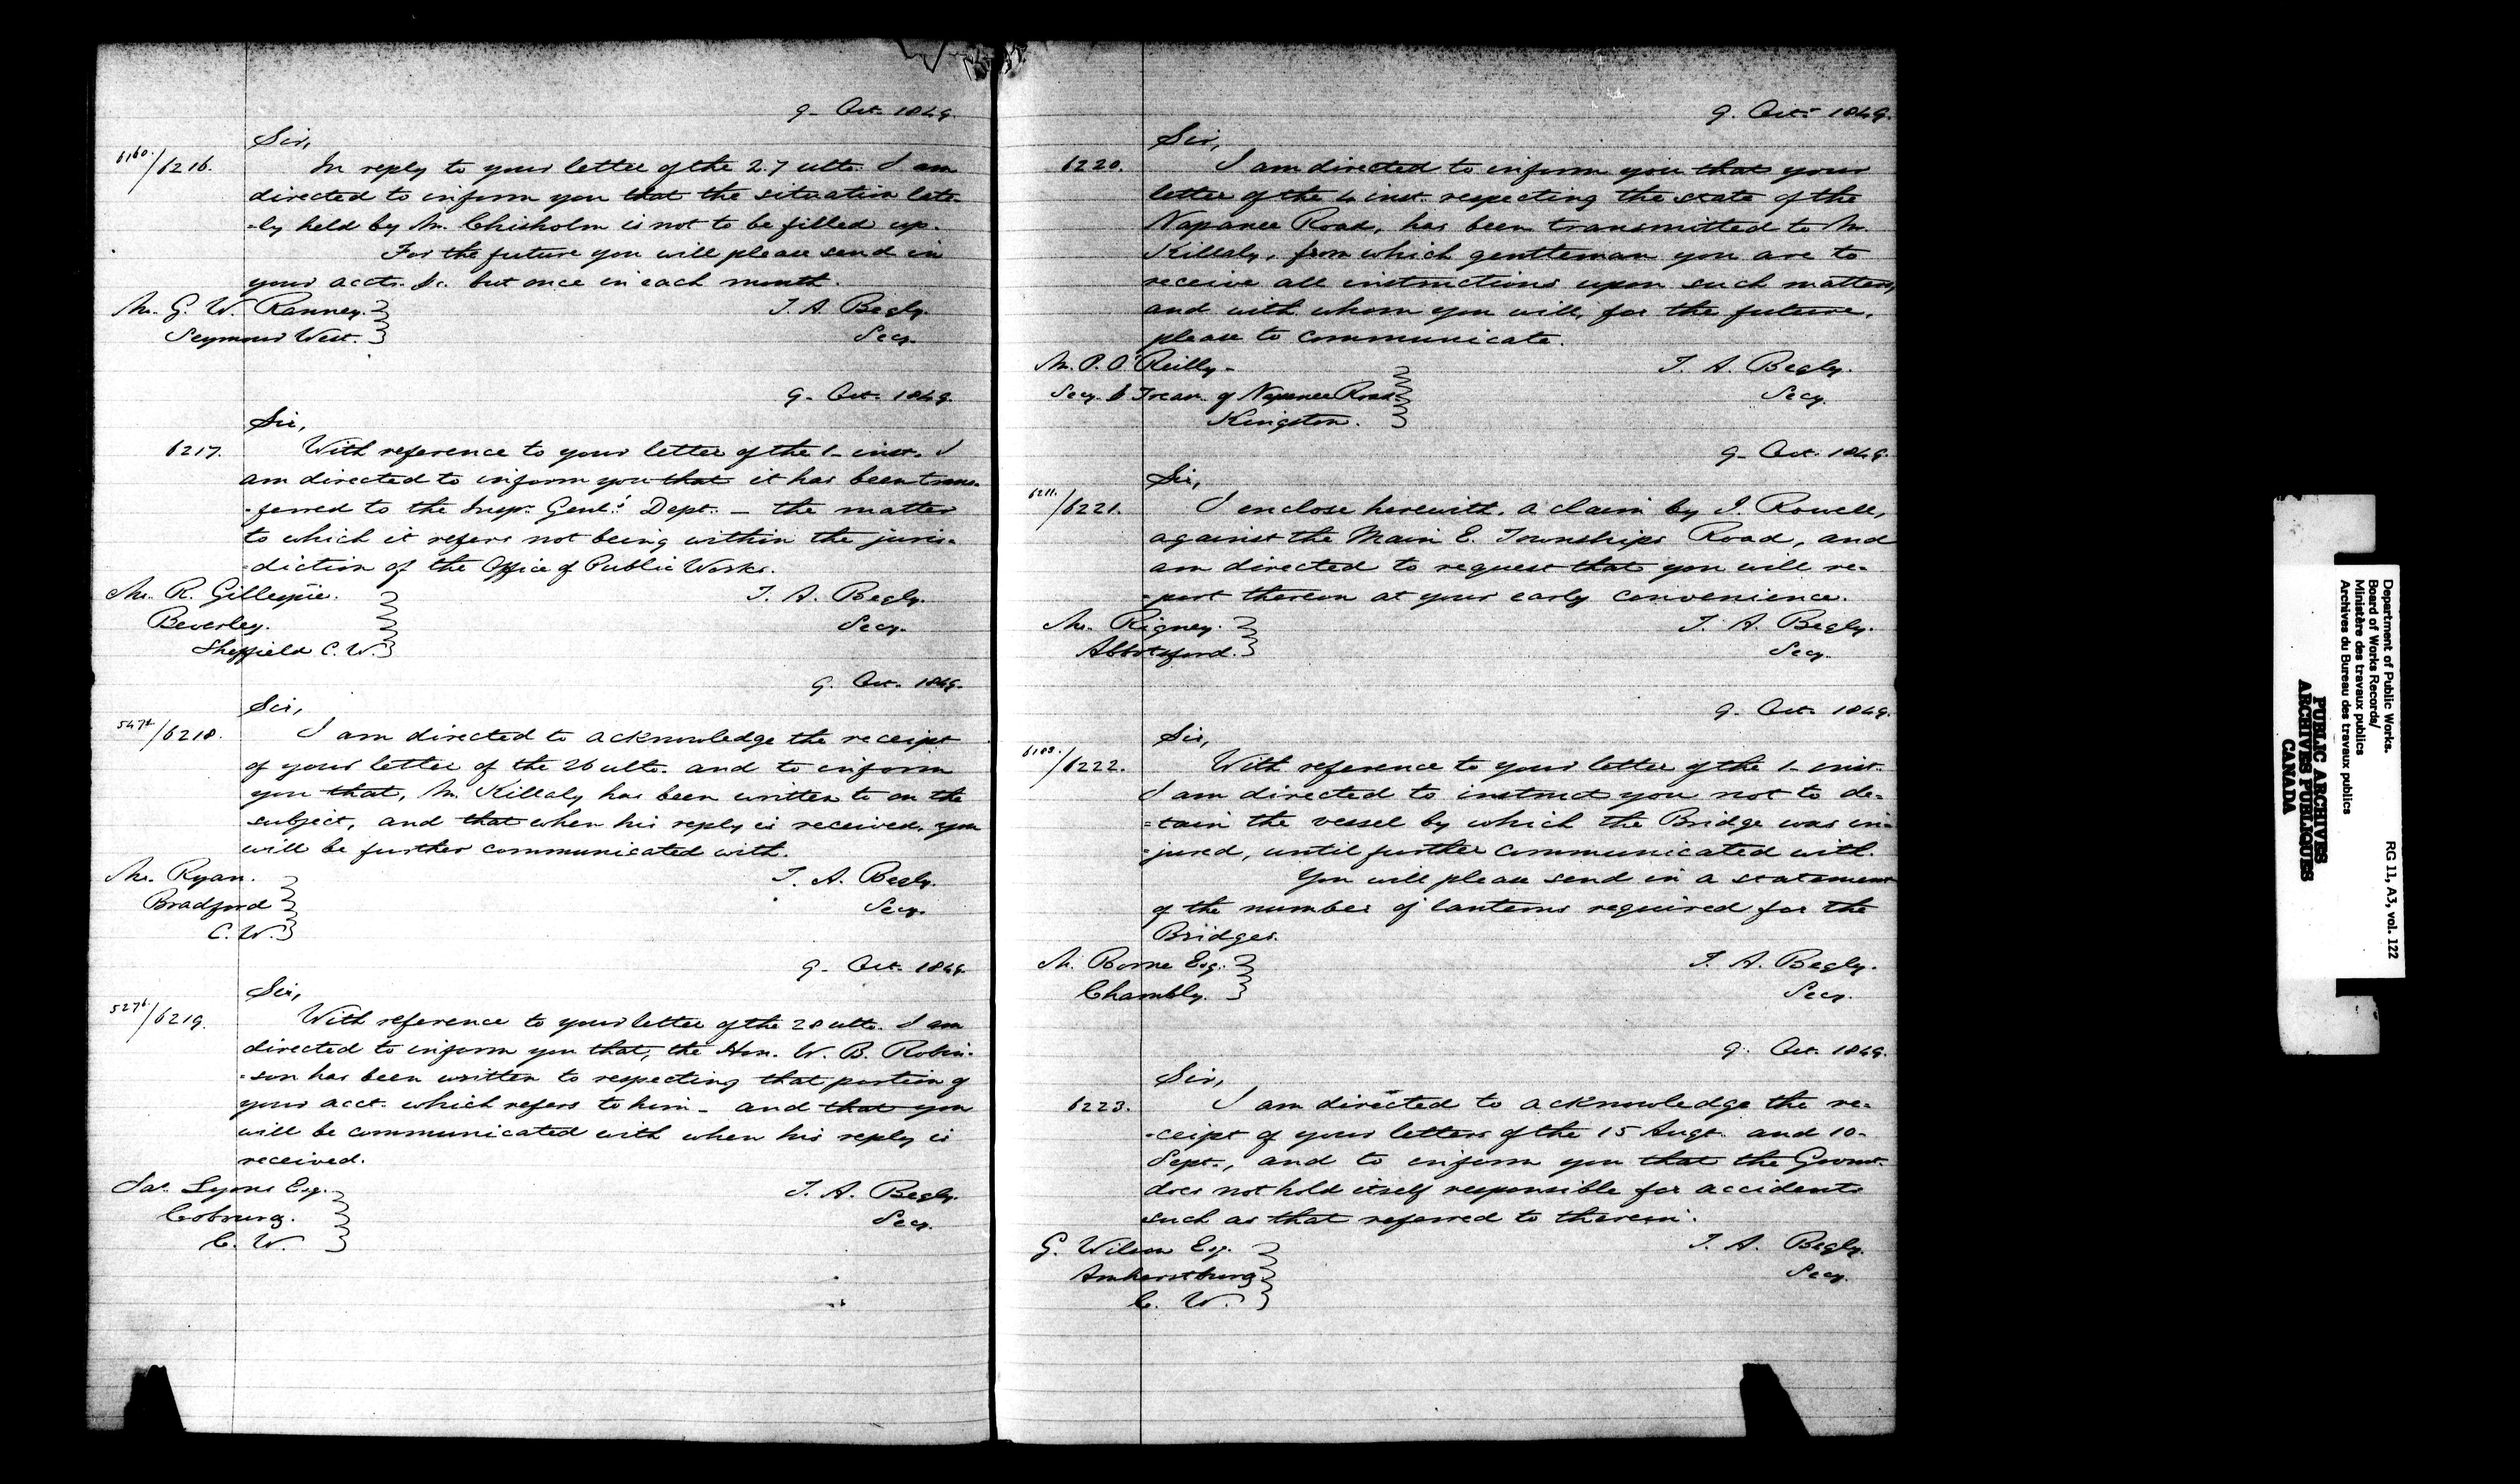 9- Oct. 1849.
Sir,
6160./6216. In reply to your letter of the 27 ulto. I am
directed to inform you that the situation late-
-ly held by Mr. Chisholm is not to be filled up.
For the future you will please send in
your accts. &c. but once in each month.
Mr. G. W. Ranney. T. A. Begly.
Seymour West. Secy.
9- Oct. 1849.
Sir,
6217. With reference to your letter of the 1- inst. I
am directed to inform you that it has been trans-
-ferred to the Inspr. Genl's Dept. - the matter
to which it refers not being within the juris-
-diction of the Office of Public Works.
Mr. R. Gillespie. T. A. Begly.
Beverley. Secy.
Sheffield C. W.
9. Oct. 1849.
Sir,
/6218. I am directed to acknowledge the receipt
of your letter of the 26 ulto. and to inform
you that, Mr. Killaly has been written to on the
subject, and that when his reply is received, you
will be further communicated with.
Mr. Ryan. T. A. Begly.
Bradford Secy.
C. W.
9- Oct. 1849.
Sir,
/6219. With reference to your letter of the 28 ulto. I am
directed to inform you that, the Hon. W. B. Robin-
-son has been written to respecting that portion of
your acct. which refers to him - and that you
will be communicated with when his reply is
received.
Jas. Lyons Esq. T. A. Begly.
Cobourg. Secy.
C. W.
9. Oct: 1849.
Sir,
6220. I am directed to inform you that your
letter of the 4 inst. respecting the state of the
Napanee Road, has been transmitted to Mr.
Killaly, from which gentleman you are to
receive all instructions upon such matters,
and with whom you will, for the future,
please to communicate.
Mr. P. O'Reilly- T. A. Begly.
Secy. & Treas. of Napanee Road Secy.
Kingston.
9- Oct. 1849.
Sir,
6211./6221. I enclose herewith, a claim by J. Rowell,
against the Main E. Townships Road, and
am directed to request that you will re-
-port thereon at your early convenience.
Mr. Rigney. T. A. Begly.
Abbotsford. Secy.
9. Oct. 1849.
Sir,
/6222. With reference to your letter of the 1- inst.
I am directed to instruct you not to de-
-tain the vessel by which the Bridge was in-
-jured, until further communicated with.
You will please send in a statement
of the number of lanterns required for the
Bridges.
M. Borne Esq. T. A. Begly.
Chambly. Secy.
9. Oct. 1849.
Sir,
6223. I am directed to acknowledge the re-
-ceipt of your letters of the 15 Augt. and 10-
Sept., and to inform you that the Govmt.
does not hold itself responsible for accidents
such as that referred to therein.
G. Wilson Esq. T. A. Begly.
Amherstburg Secy.
C. W.
Department of Public Works.
Board of Works Records/
Ministère des travaux publics
Archives du Bureau des travaux publics
RG 11, A3, vol. 122
PUBLIC ARCHIVES
ARCHIVES PUBLIQUES
CANADA